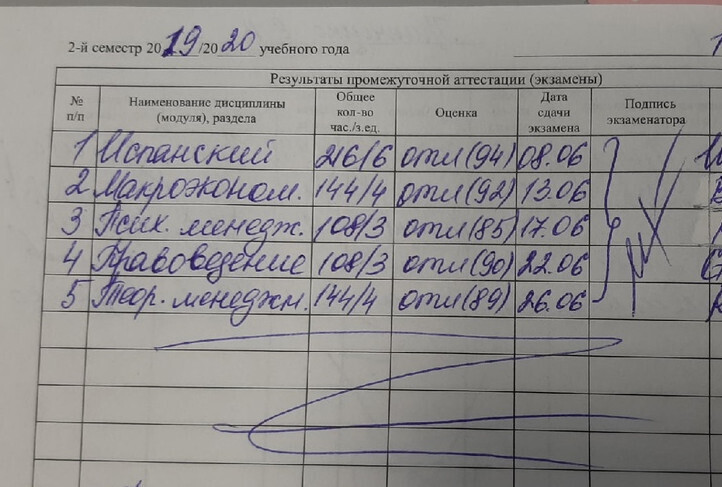 2-й семестр 2019/2020 учебного года
Результаты промежуточной аттестации (экзамены)
№ п/п Наименование дисциплины (модуля), раздела Общее кол-во час./з.ед. Оценка Дата сдачи экзамена Подпись экзаменатора
1 Испанский 216/6 отл(94) 08.06
2 Макроэконом. 144/4 отл(92) 13.06
3 Псих. менедж. 108/3 отл(85) 17.06
4 Правоведение 108/3 отл(90) 22.06
5 Теор. менеджм. 144/4 отл(89) 26.06